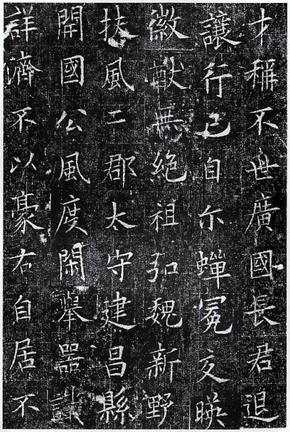 才稱不世廣國長君退
讓行已自尒蟬冕交暎
徽猷無絕祖弘魏新野
扶風二郡太守建昌縣
開國公風度閑舉器
詳濟不以豪右自居不